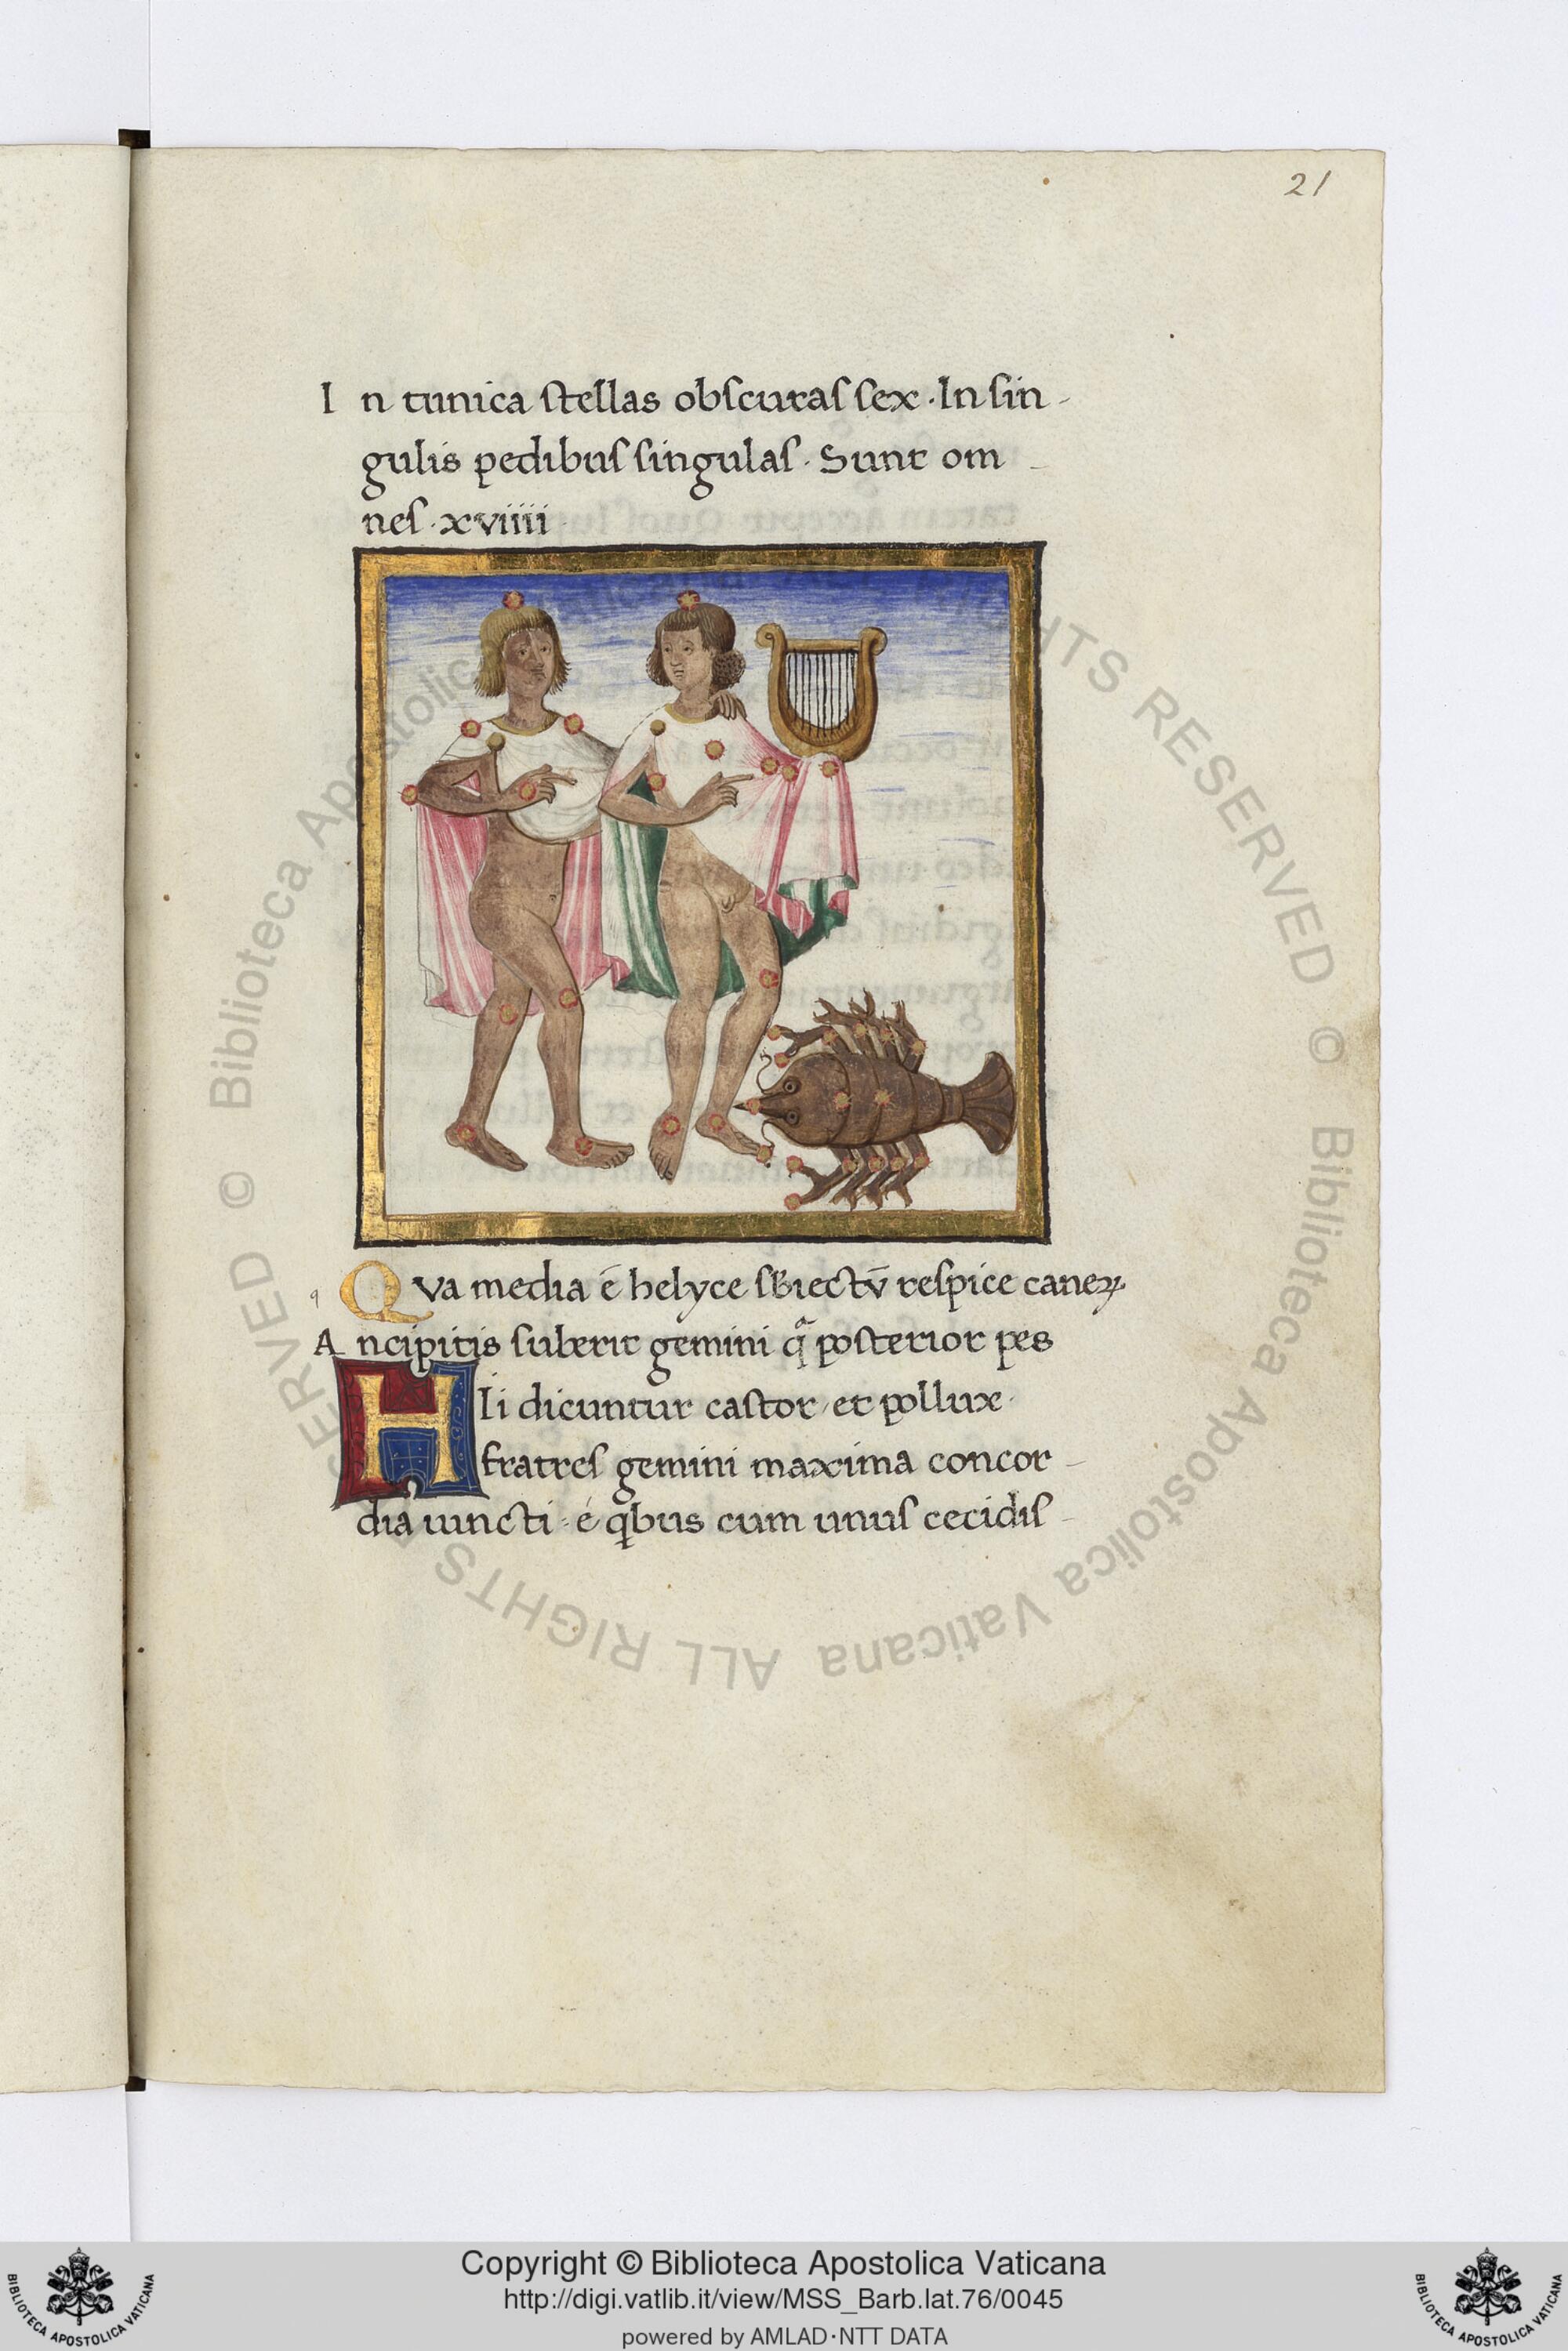 21
I n tunica ſtellas obſcuraſ ſex · In ſin-
gulis pedibuſ ſingulaſ · Sunt om-
neſ · xviiii ·
Q va media ē helyce ſBiectv̄ reſpice caneꝝ
A ncipitis ſuberit gemini qͣ poſterior pes
H Ii dicuntur caſtor · et pollux ·
fratreſ gemini maxima concor-
dia iuncti · é qbus cum unuſ cecidiſ-
© Biblioteca Apostolica Vaticana ALL RIGHTS RESERVED © Biblioteca Apostolica Vaticana ALL RIGHTS RESERVED
BIBLIOTECA APOSTOLICA VATICANA
Copyright © Biblioteca Apostolica Vaticana
http://digi.vatlib.it/view/MSS_Barb.lat.76/0045
powered by AMLAD·NTT DATA
BIBLIOTECA APOSTOLICA VATICANA